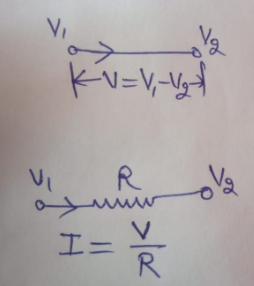 V₁ V₂
V=V₁-V₂
V₁ R V₂
I = V/R